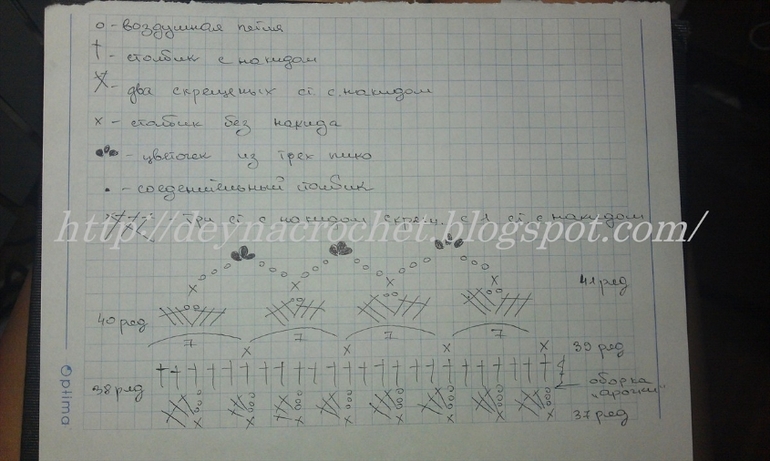 o - воздушная петля
† - столбик с накидом
два скрещеных ст с накидом
x - столбик без накида
- цветочек из трех пико
. - соеденительный столбик
- три ст с накидом скрещ. с 1 ст с накидом
http://deynacrochet.blogspot.com/
41 ряд
40 ряд
7 7 7 7
39 ряд
38 ряд
оборка
37 ряд
Optima